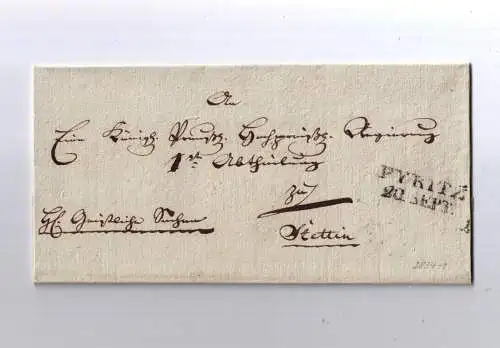 An
Eine Königl. Preußl. Hochpreißl. Regierung
1te Abtheilung
zu
Stettin
Geistliche Sachen
PYRITZ
20 SEPT.